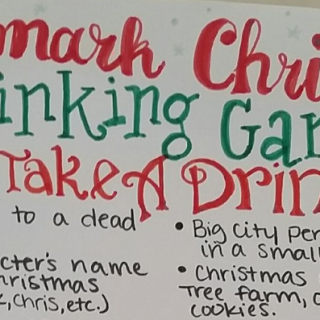 mark Chri
inking Gam
Take A Drin
to a dead
cter's name
hristmas
, Chris, etc.)
• Big City per
in a small
• Christmas
Tree farm, c
cookies.